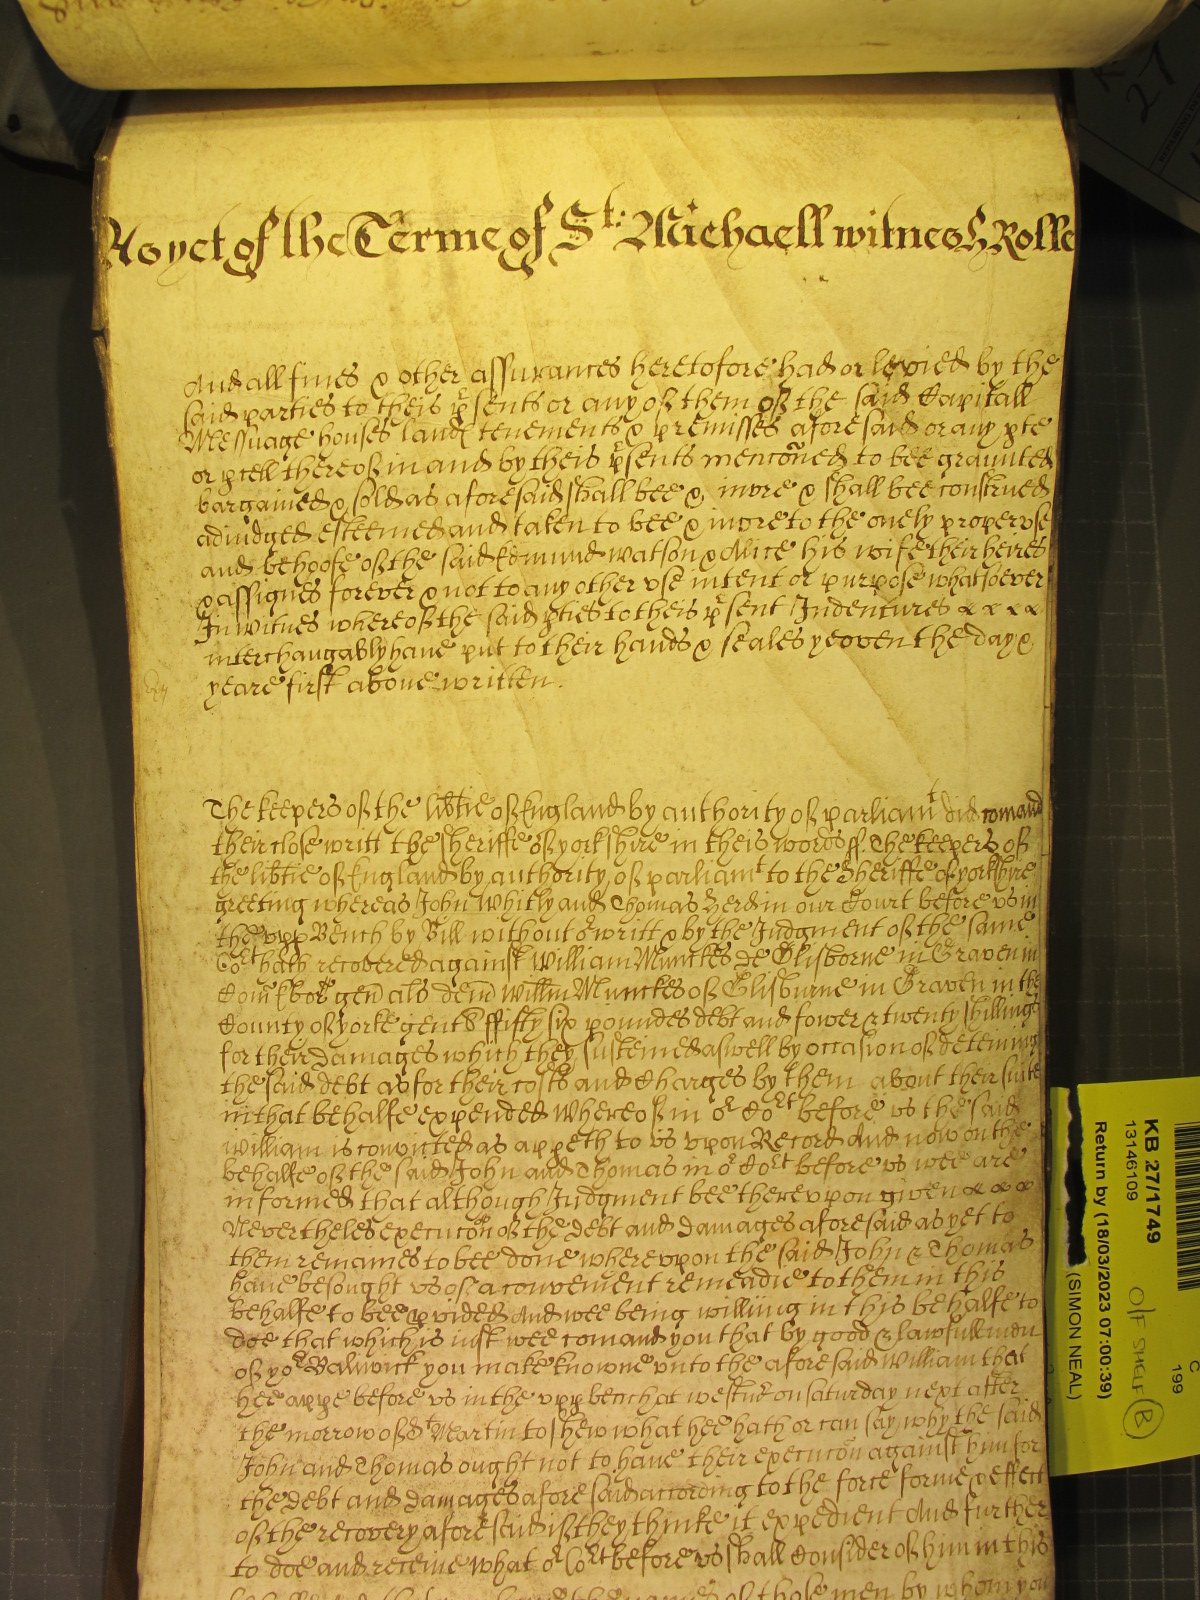 As yet of the Terme of St: Michaell witnes H Rolle
And all fines & other assurances heretofore had or levied by the
said parties to theis psents or any of them of the said Capitall
Messuage houses lands tenements & premisses aforesaid or any pte
or pcell thereof in and by theis psents menconed to bee graunted
bargained & sold as aforesaid shall bee & inure & shall bee construed
adiudged esteemed and taken to bee & inure to the onely proper vse
and behoofe of the said Edmund Watson & Alice his wife their heires
& assignes forever & not to any other vse intent or purpose whatsoever
In witnes whereof the said pties to theis psent Indentures x x x x
interchangably have put to their hands & seales yeoven the day &
yeare first above written.
The keepers of the libtie of England by authority of parliamt did comand
their close writt the sheriffe of yorkshire in theis words ff. The keepers of
the libtie of England by authority of parliamt to the Sheriffe of yorkshire
greeting whereas John Whitly and Thomas Herd in our Court before vs in
the vpp Bench by Bill without or writt & by the Judgment of the same
Cort hath recovered against William Munckes de Glisborne in Craven in
Com Ebor gen als dem Willm Munckes of Glisburne in Craven in the
County of yorke gent ffifty six poundes debt and fower & twenty shillings
for their damages which they susteined aswell by occasion of deteining
the said debt as for their costs and Charges by them about their suite
in that behalfe expended Whereof in or Cort before vs the said
William is convicted as appeth to vs vpon Record And now on the
behalfe of the said John and Thomas in or Cort before vs wee are
informed that although Judgment bee therevpon given x x x
Nevertheles execucon of the debt and damages aforesaid as yet to
them remaines to bee done wherevpon the said John & Thomas
have besought vs of a convenient remeadie to them in this
behalfe to bee pvided And wee being willing in this behalfe to
doe that which is iust wee comand you that by good & lawfull men
of yor Baliwick you make knowne vnto the aforesaid William that
hee appe before vs in the vpp bench at westmr on saturday next after
the morrow of st Martin to shew what hee hath or can say why the said
John and Thomas ought not to have their execucon against him for
the debt and damages aforesaid according to the force forme & effect
of the recovery aforesaid if they thinke it expedient And further
to doe and receive what or Cort before vs shall Consider of him in this
of those men by whom you
KB 27/1749
13146109
Return by (18/03/2023 07:00:39)
(SIMON NEAL)
Off Shelf B
C
199
27